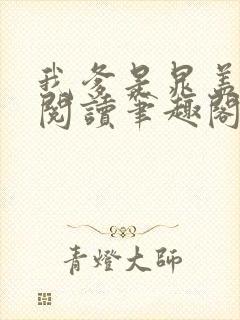 我爹是晁盖
閱讀筆趣閣
青燈大師